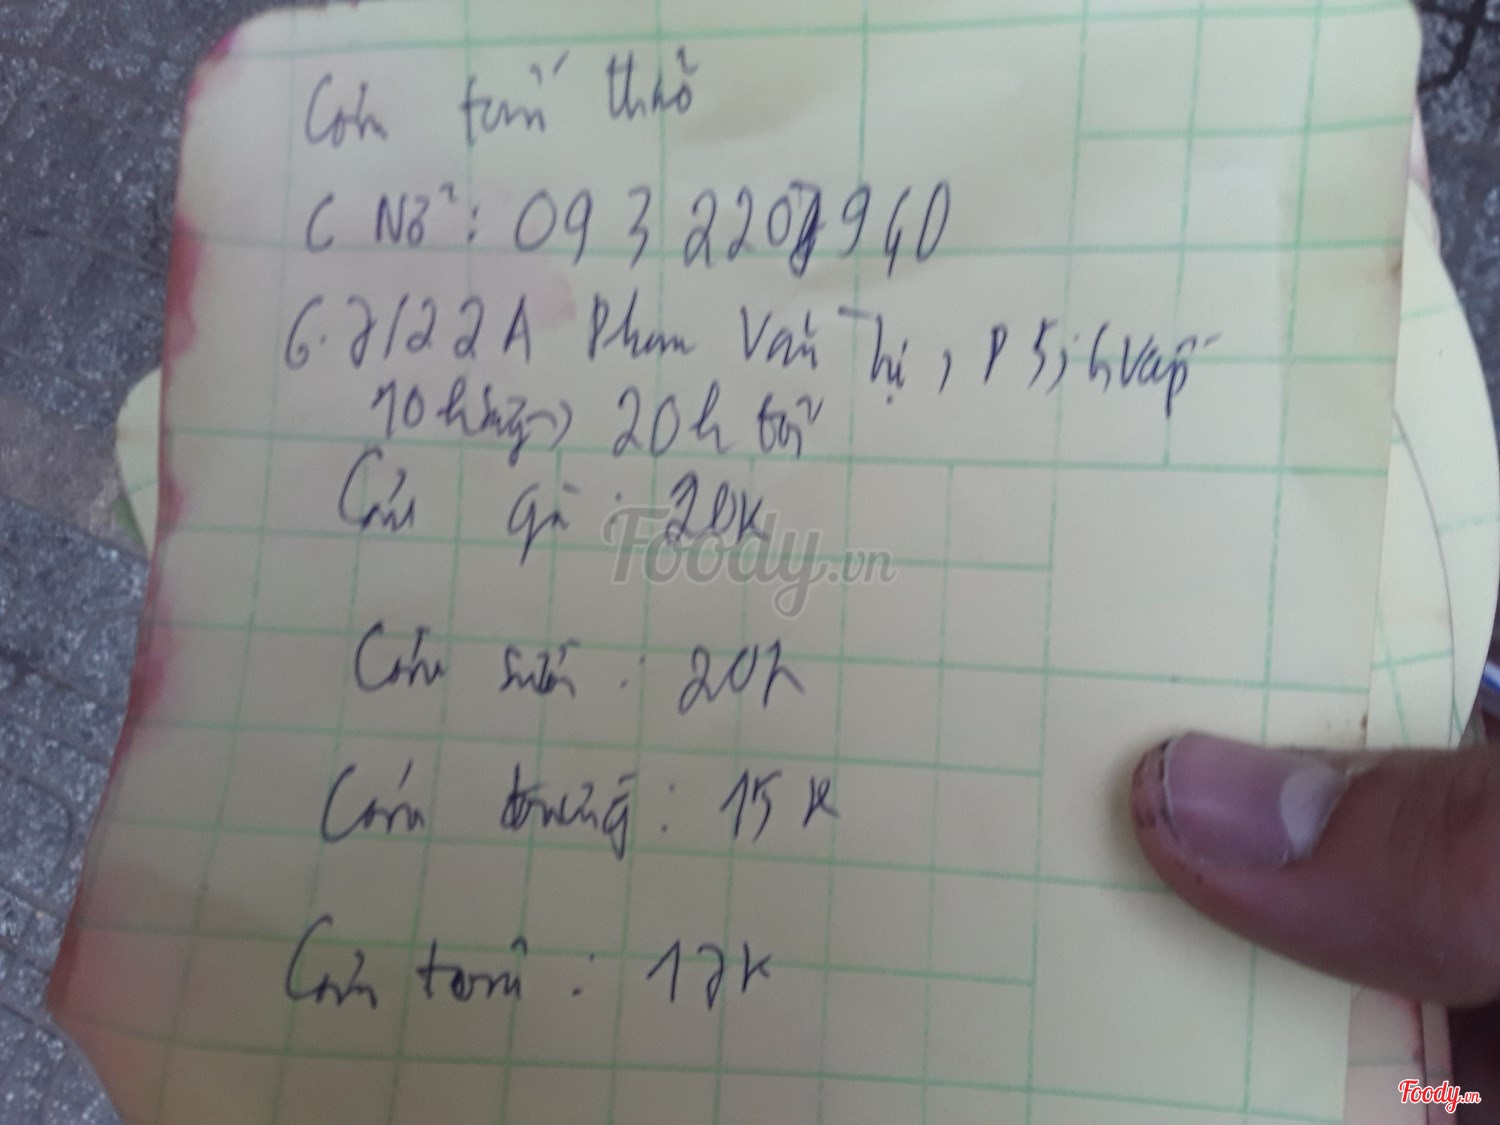 Cơm tấm thổ
C Nở: 093 220 940
Phạm Văn Thị, P5, GVấp
10h sáng -> 20h tối
Cơm gà: 20k
Cơm sườn: 20k
Cơm trứng: 15k
Cơm tấm: 12k
Foody.vn
Foody.vn